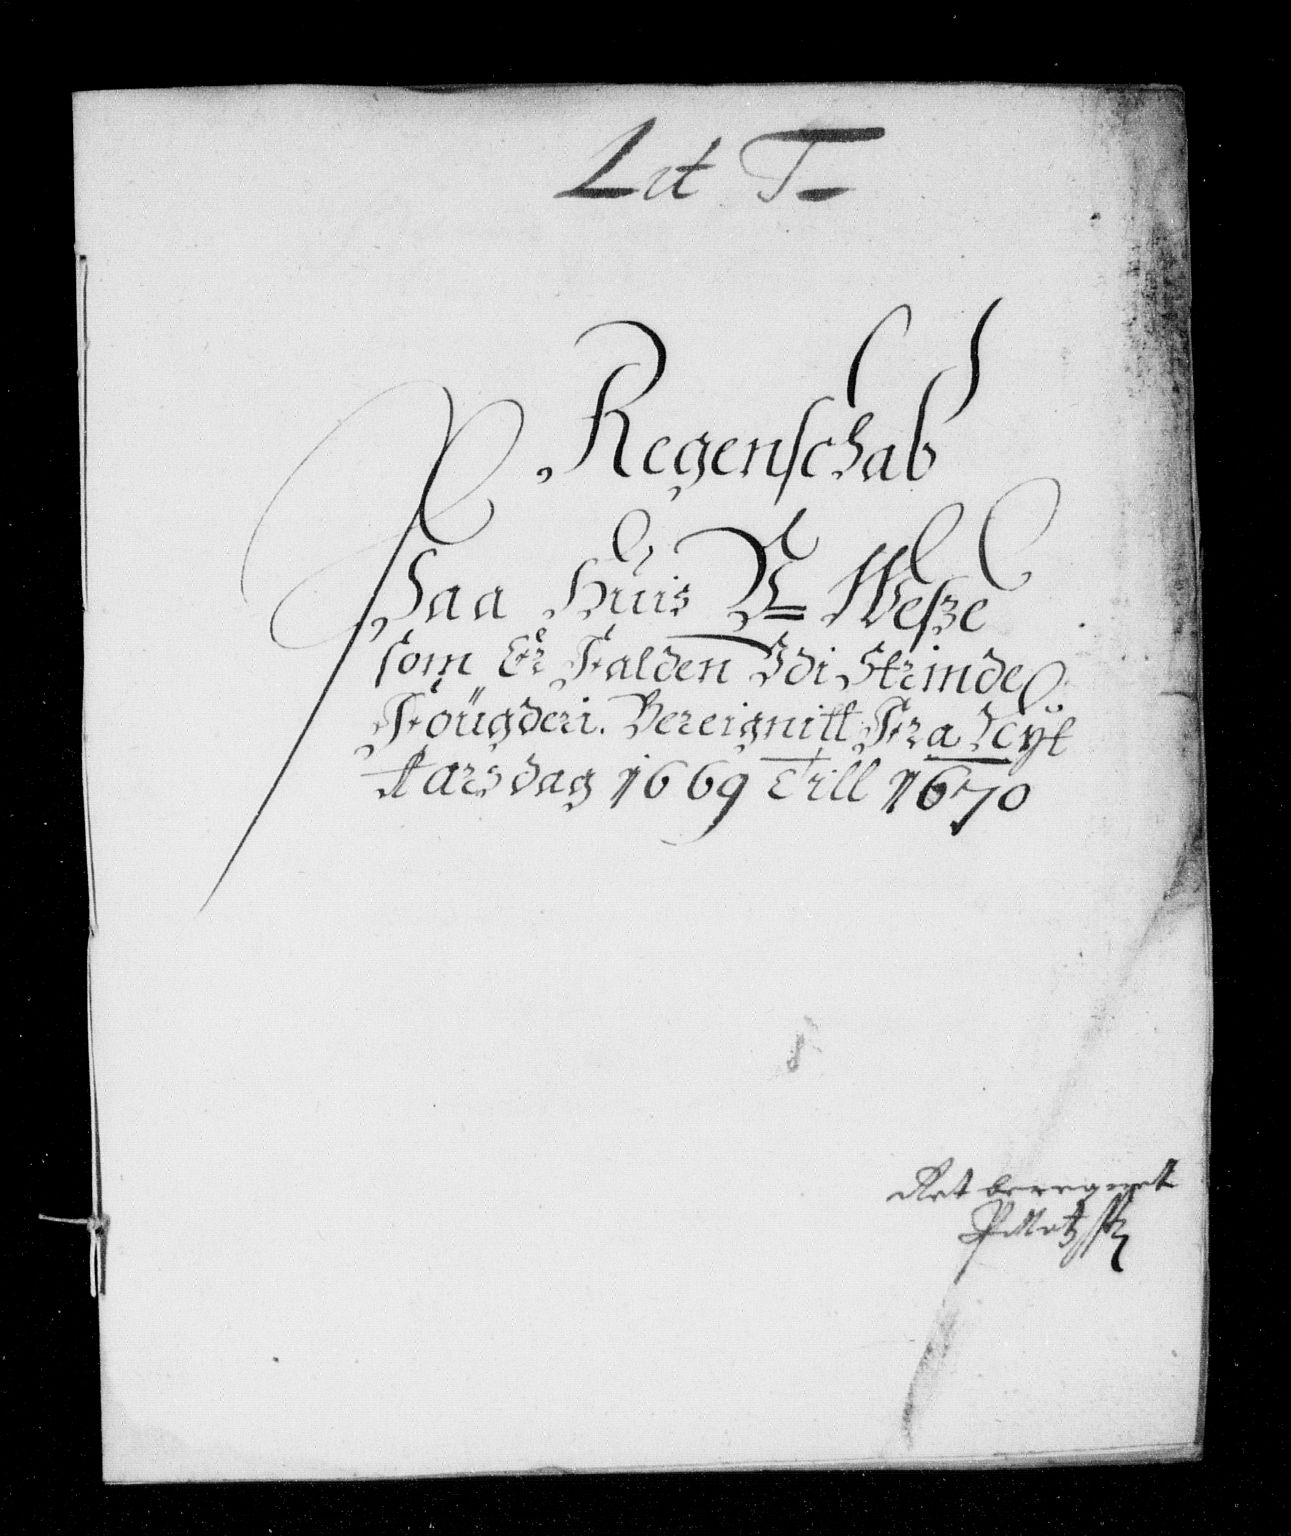 Lit T
Regenschab
Paa Huis U Wesze
som Er Falden Udi Strinde
Fougderi. Bereignitt Fra Nyt
Aarsdag 1669 Till 1670
Ret beregnet